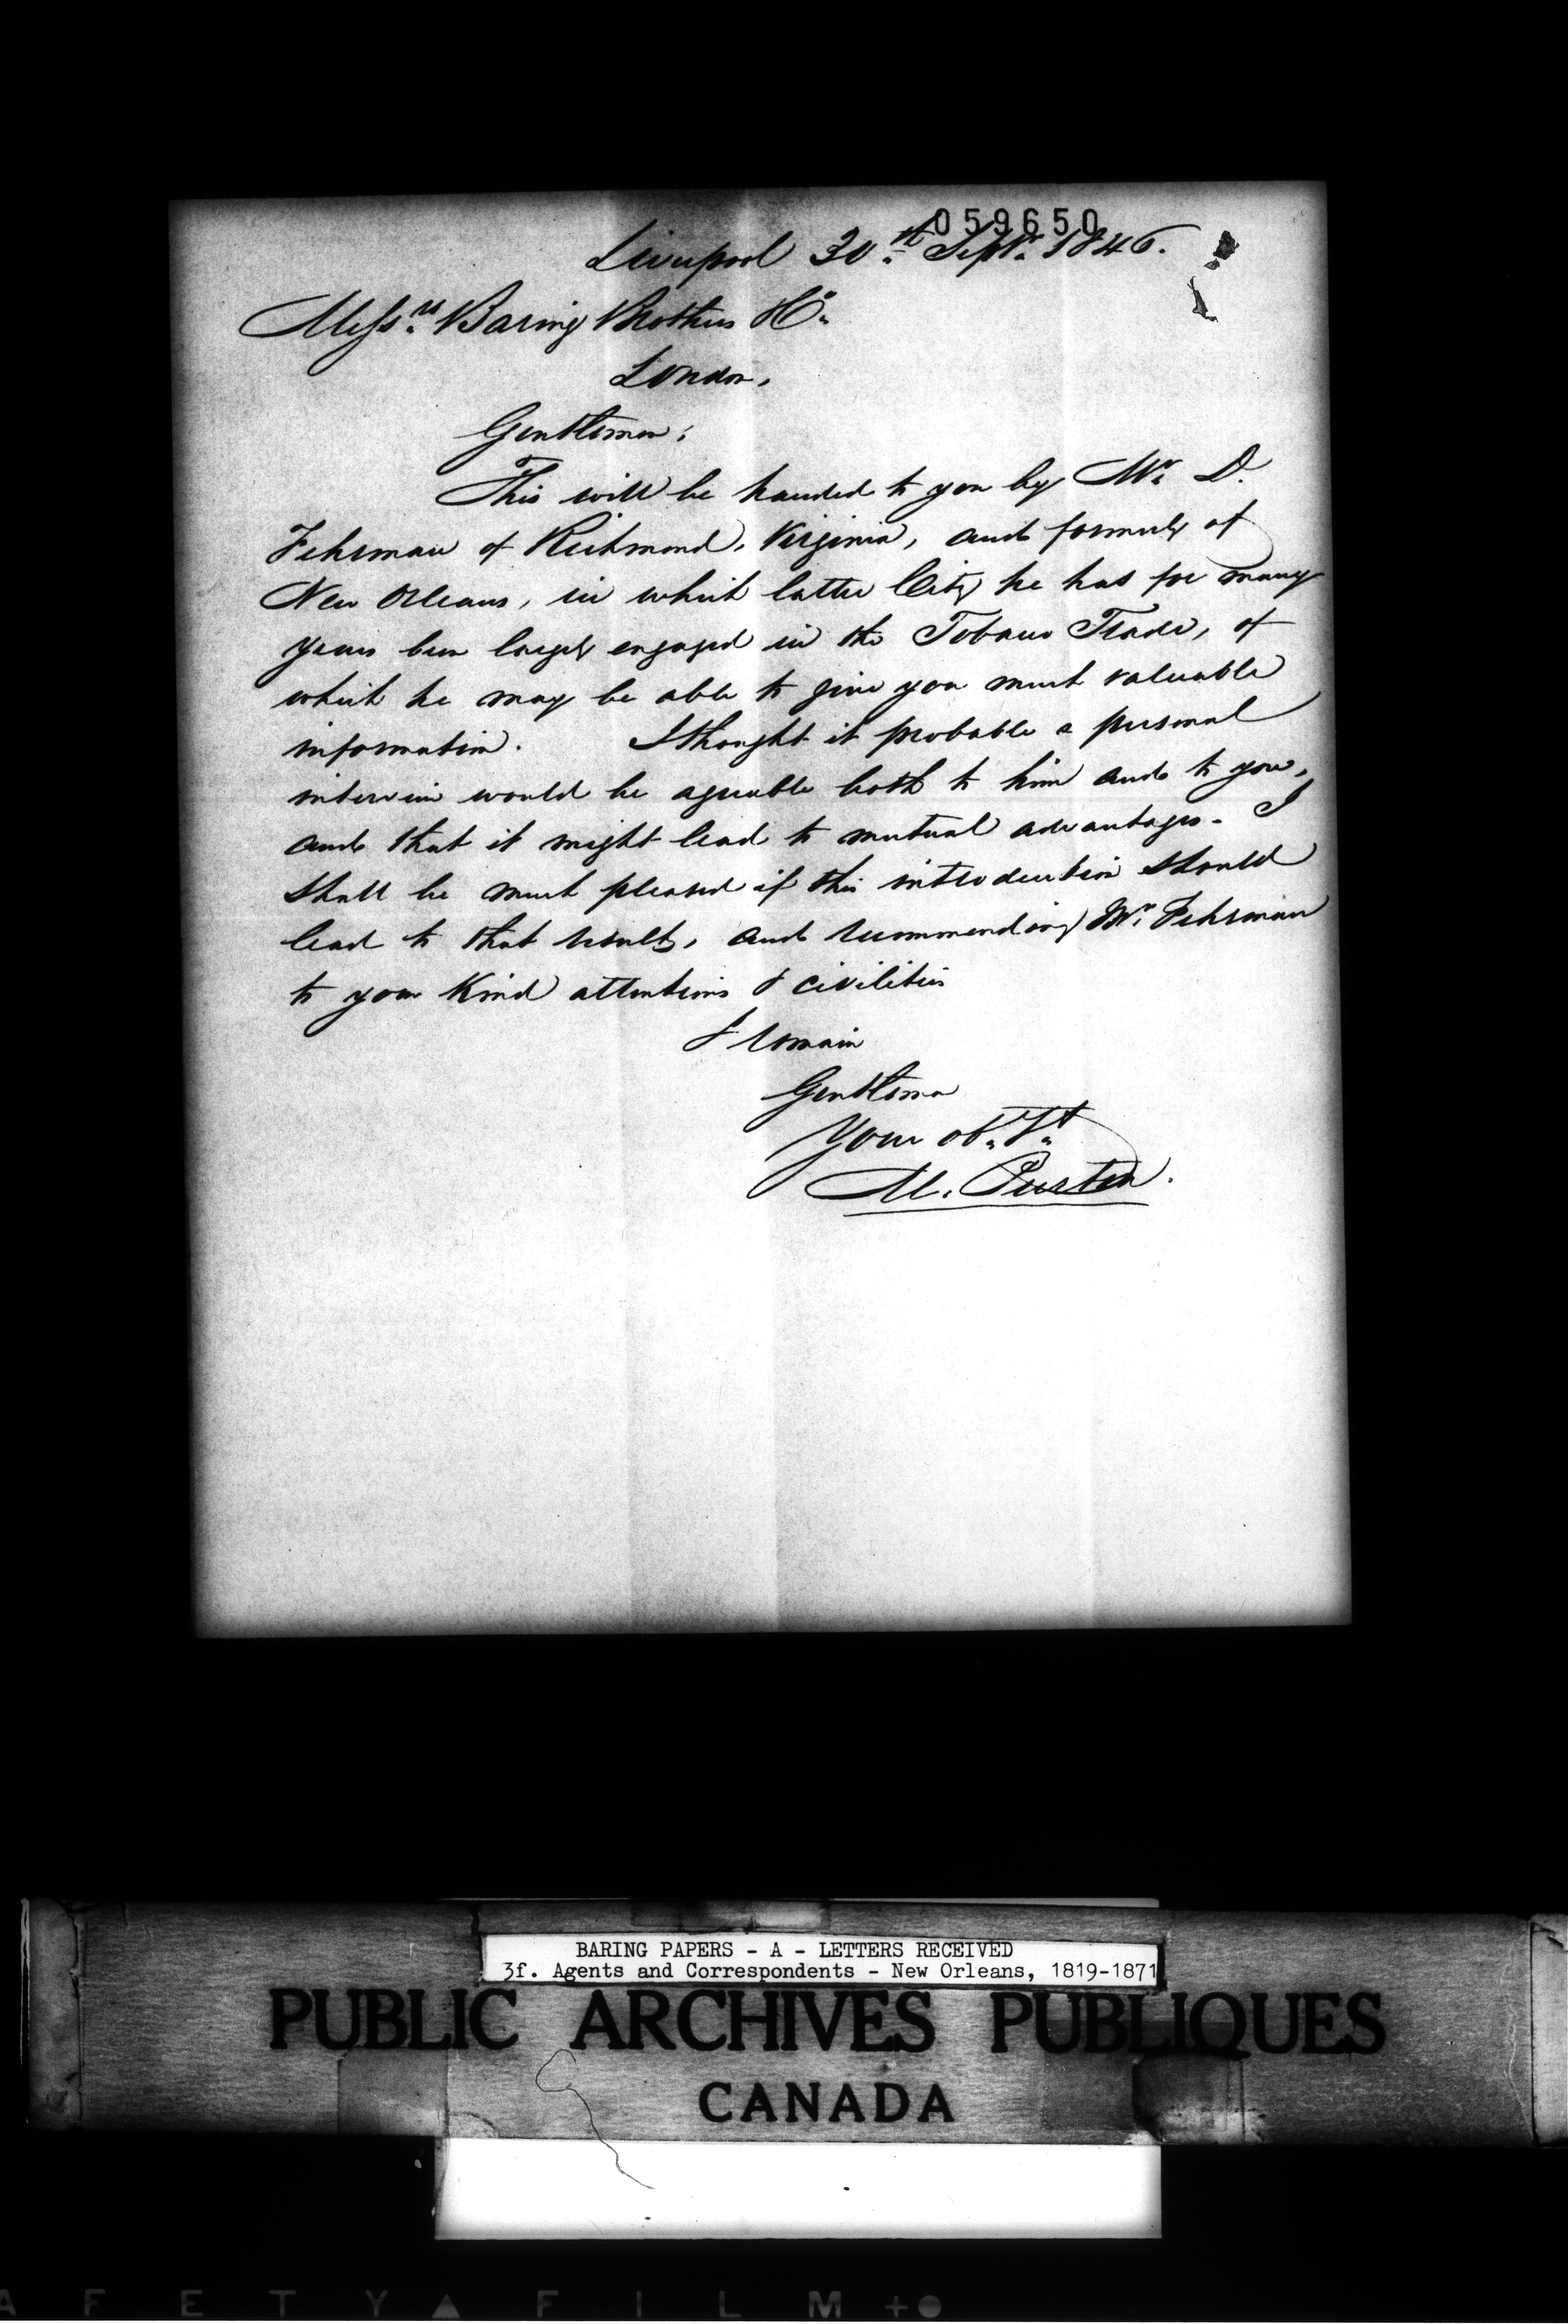 059650
Liverpool 30th Septr. 1846.
Messrs. Baring Brothers & Co.
London.
Gentlemen;
This will be handed to you by Mr. D.
Fehrman of Richmond, Virginia, and formerly of
New Orleans, in which latter City he has for many
years been largely engaged in the Tobacco Trade, of
which he may be able to give you much valuable
information. I thought it probable a personal
interview would be agreeable both to him and to you,
and that it might lead to mutual advantages. I
shall be much pleased if this introduction should
lead to that result, and recommending Mr. Fehrman
to your kind attentions & civilities
I remain
Gentlemen
Your ob. St.
M.
BARING PAPERS - A - LETTERS RECEIVED
3f. Agents and Correspondents - New Orleans, 1819-1871
PUBLIC ARCHIVES PUBLIQUES
CANADA
AFETY FILM